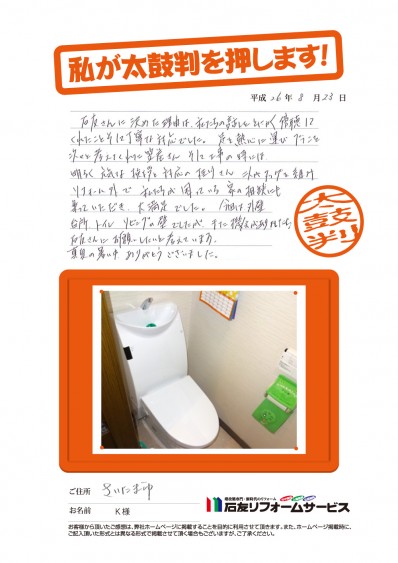 私が太鼓判を押します!
平成 26 年 8 月 23 日
石友さんに決めた理由は、私たちの話しをとにかく傾聴して
くれたことそして丁寧な対応でした。足を熱心に運び プランを
次々と考えてくれた さん そして工事の時には、
明るく 元気な挨拶と対応の さん 次々
リフォーム外で私たちが困っている家の相談にも
乗っていただき、大満足でした。 今回は外壁
台所 トイレ リビングの壁でしたが、また機会がありましたら
石友さんにお願いしたいと考えています。
真夏の暑い中 ありがとうございました。
太鼓判
ご住所 さいたま市
お名前 K 様
石友リフォームサービス
お客様から頂いたご感想は、弊社ホームページに掲載することを目的に利用させて頂きます。また、ホームページ掲載時に、
ご記入頂いた形式とは異なる形式で掲載させて頂く場合もございますが、ご了承ください。